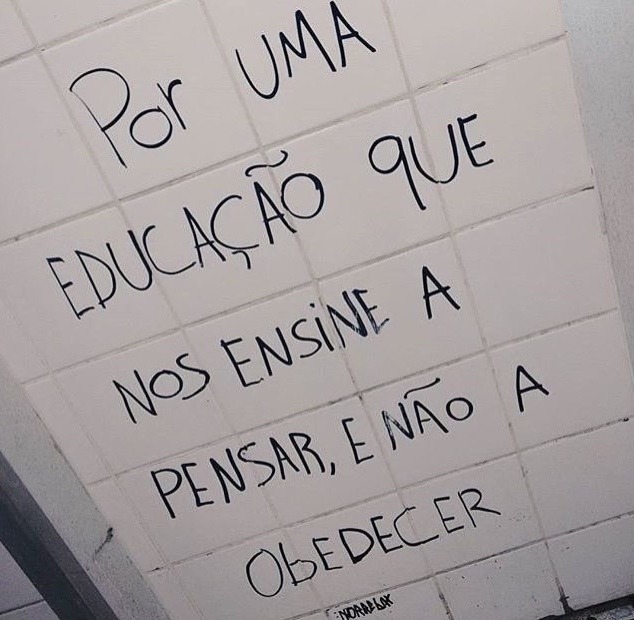 Por UMA
EDUCAÇÃO QUE
NOS ENSiNE A
PENSAR, E NÃO A
ObEDECER